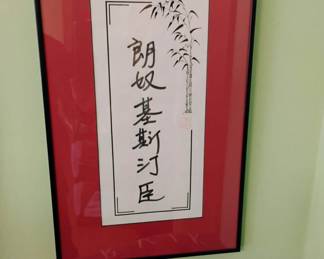 朗奴基斯汀臣